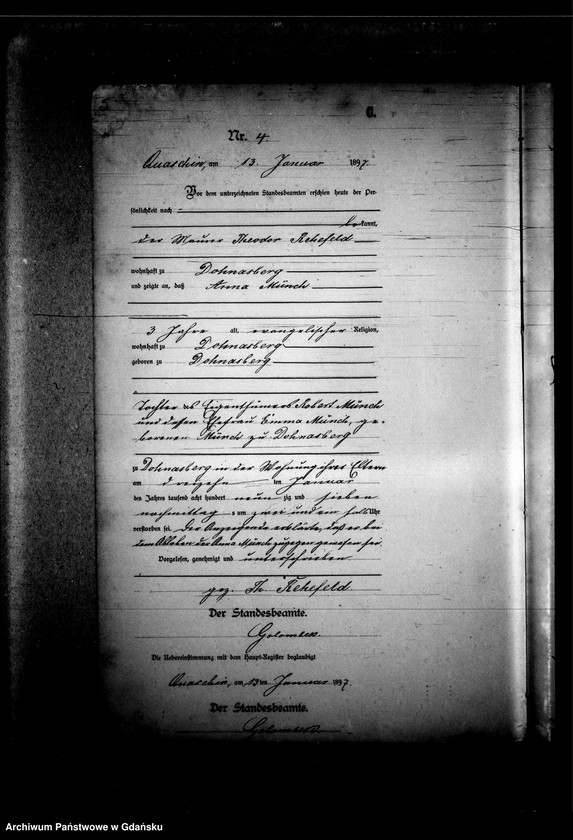 C.
Nr. 4.
Quaschin, am 13. Januar 1897.
Vor dem unterzeichneten Standesbeamten erschien heute der Per-
sönlichkeit nach
bekannt,
der Maurer Theodor Rehefeld
wohnhaft zu Dohnasberg
und zeigte an, daß Anna Münch
3 Jahre alt, evangelischer Religion,
wohnhaft zu Dohnasberg
geboren zu Dohnasberg
Tochter des Eigenthümers Robert Münch
und dessen Ehefrau Emma Münch, ge-
borenen Münch zu Dohnasberg
zu Dohnasberg in der Wohnung ihrer Eltern
am dreizehn ten Januar
des Jahres tausend acht hundert neun zig und sieben
nachmittag s um zwei und ein halb Uhr
verstorben sei. Der Anzeigende erklärte, daß er bei
dem Ableben der Anna Münch zugegen gewesen sei.
Vorgelesen, genehmigt und unterschrieben
gez. Th. Rehefeld.
Der Standesbeamte.
Die Uebereinstimmung mit dem Haupt-Register beglaubigt
Quaschin, am 13 ten Januar 1897.
Der Standesbeamte.
Archiwum Państwowe w Gdańsku